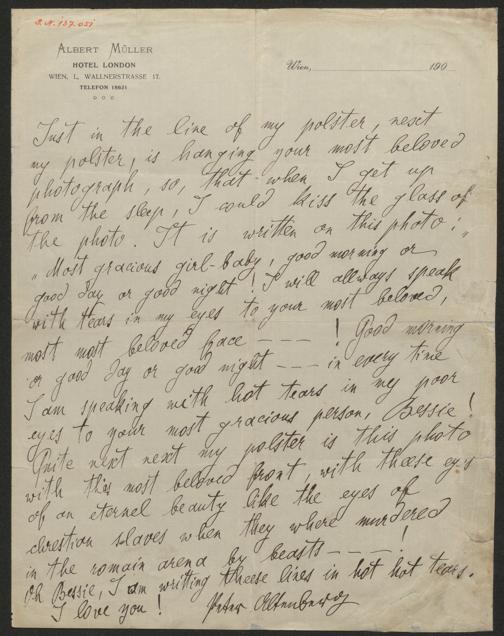 I.N. 137.051
ALBERT MÜLLER
HOTEL LONDON
WIEN, I., WALLNERSTRASSE 17.
TELEFON 18621
Wien, 190
Just in the line of my polster, next
my polster, is hanging your most beloved
photograph, so, that when I get up
from the sleep, I could kiss the glass of
the photo. It is written on this photo:
„Most gracious girl-baby, good morning or
good day or good night! I will allways speak
with tears in my eyes to your most beloved,
most most beloved face – – – ! Good morning
or good day or good night – – – in every time
I am speaking with hot tears in my poor
eyes to your most gracious person, Bessie!
Quite next next my polster is this photo
with this most beloved front, with theese eyes
of an eternel beauty like the eyes of
chrestion slaves when they where murdered
in the romain arena by beasts – – – – !
Oh Bessie, I am writting theese lines in hot hot tears.
I love you! Peter Altenberg